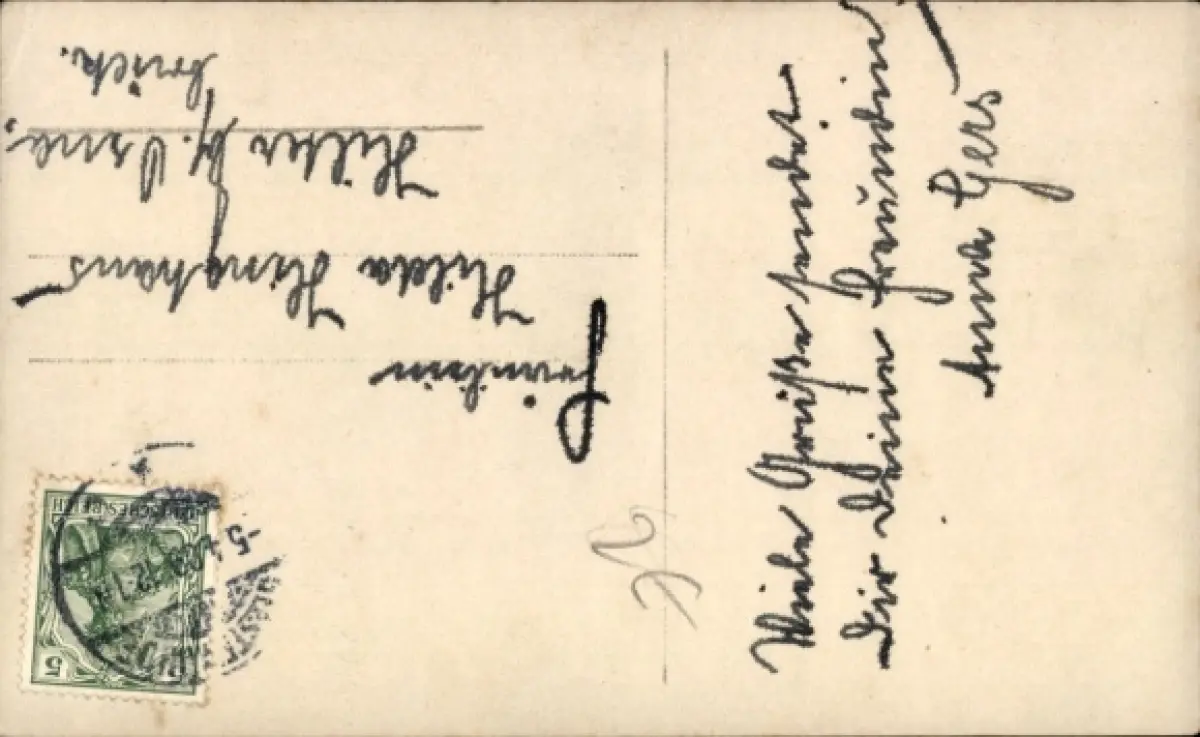 Viele Grüße sendet
Dir deine Freundin
Anna Gers
Fräulein
Hilda
Hilter b/. Osna,
brück.
DEUTSCHES REICH
5